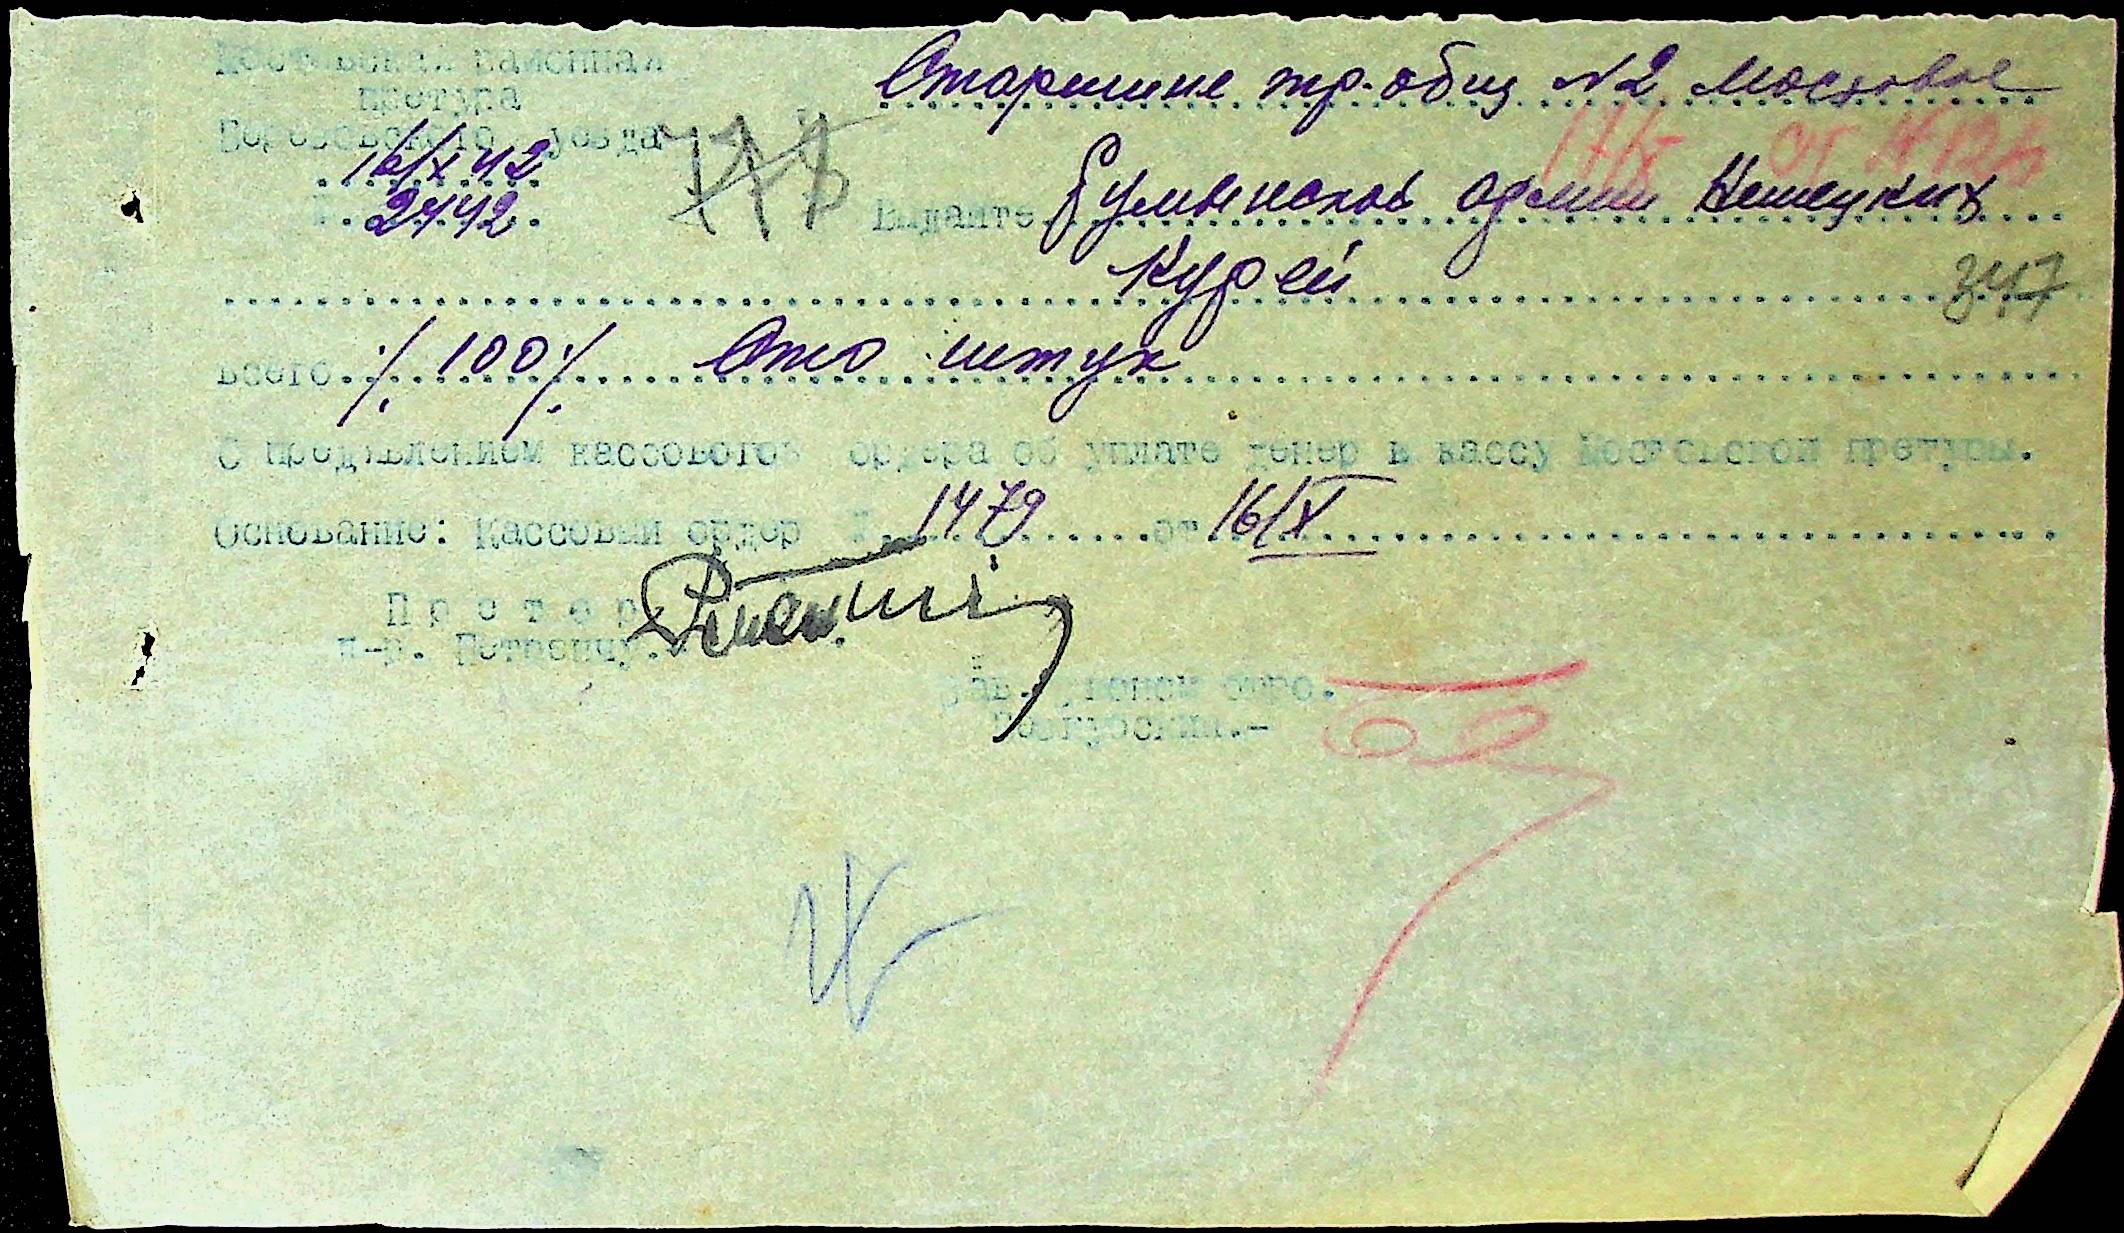 Мостовская районная
претура
Березовского уезда
16/X 42
2442
Старшине тр. общ N2 Мостовое
17/X
Выдайте Румынской админ Немецких
Курей
347
Всего ./. 100 ./. Сто штук
С предъявлением кассового ордера об уплате денег в кассу Мостовской претуры.
Основание: Кассовый ордер № 1479 от 16/X
Претор